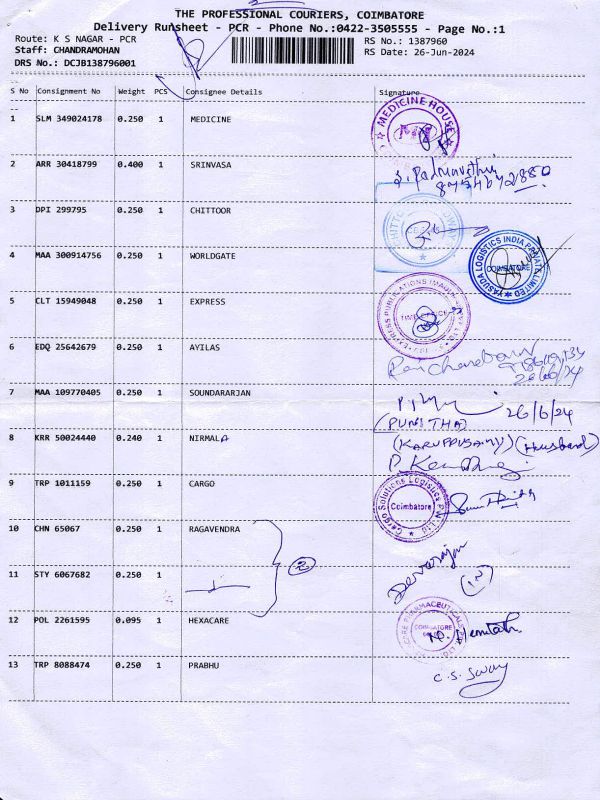 THE PROFESSIONAL COURIERS, COIMBATORE
Delivery Runsheet - PCR - Phone No.:0422-3505555 - Page No.:1
Route: K S NAGAR - PCR
RS No.: 1387960
Staff: CHANDRAMOHAN
RS Date: 26-Jun-2024
DRS No.: DCJB138796001
S No Consignment No Weight PCS Consignee Details Signature
1 SLM 349024178 0.250 1 MEDICINE
MEDICINE HOUSE
2 ARR 30418799 0.400 1 SRINVASA
S. Padmavathi
3 DPI 299795 0.250 1 CHITTOOR
4 MAA 300914756 0.250 1 WORLDGATE
YASUDA LOGISTICS INDIA PRIVATE LIMITED
COIMBATORE
5 CLT 15949048 0.250 1 EXPRESS
6 EDQ 25642679 0.250 1 AYILAS
7 MAA 109770405 0.250 1 SOUNDARARJAN
26/6/24
(PUNITHA)
8 KRR 50024440 0.240 1 NIRMALA
(KARUPPUSAMY) (Husband)
9 TRP 1011159 0.250 1 CARGO
Cargo Solutions Logistics Pvt. Ltd
Coimbatore
10 CHN 65067 0.250 1 RAGAVENDRA
2
Devarajan
11 STY 6067682 0.250 1
12 POL 2261595 0.095 1 HEXACARE
COIMBATORE
13 TRP 8088474 0.250 1 PRABHU
C.S. Sway